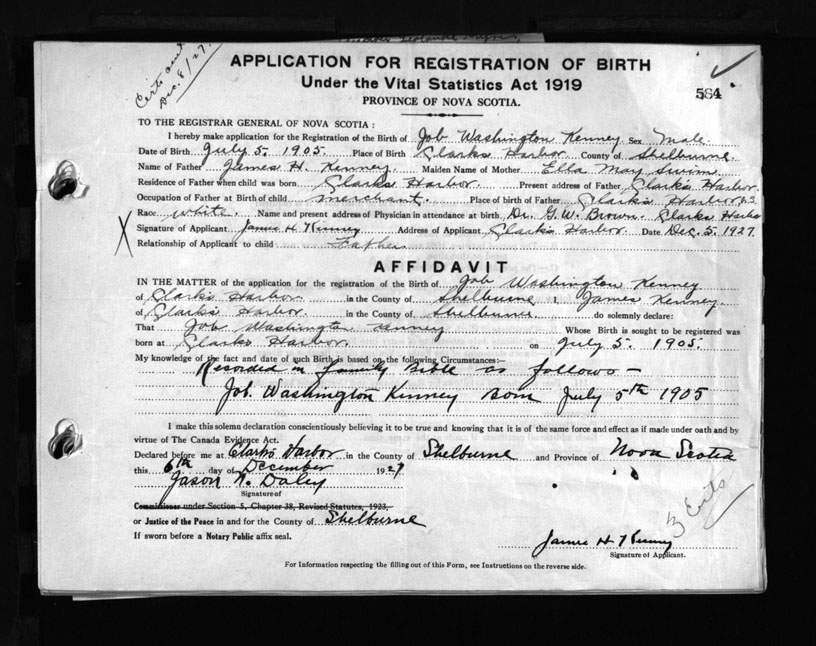 Certs and
Dec. 8/27.
APPLICATION FOR REGISTRATION OF BIRTH
Under the Vital Statistics Act 1919
584
PROVINCE OF NOVA SCOTIA.
TO THE REGISTRAR GENERAL OF NOVA SCOTIA :
I hereby make application for the Registration of the Birth of Job Washington Kenney Sex Male
Date of Birth July 5. 1905. Place of Birth Clarks Harbor. County of Shelburne.
Name of Father James H. Kenney. Maiden Name of Mother Ella May Swim.
Residence of Father when child was born Clarks Harbor. Present address of Father Clark's Harbor
Occupation of Father at Birth of child merchant. Place of birth of Father Clark's Harbor N.S.
Race white. Name and present address of Physician in attendance at birth Dr. G.W. Brown. Clarks Harbor
X Signature of Applicant James H Kenney Address of Applicant Clark's Harbor. Date Dec. 5. 1927.
Relationship of Applicant to child Father
AFFIDAVIT
IN THE MATTER of the application for the registration of the Birth of Job Washington Kenney
of Clark's Harbor in the County of Shelburne I, James Kenney.
of Clark's Harbor. in the County of Shelburne. do solemnly declare:
That Job Washington Kenney Whose Birth is sought to be registered was
born at Clark's Harbor. on July 5. 1905.
My knowledge of the fact and date of such Birth is based on the following Circumstances:—
Recorded in family Bible as follows —
Job. Washington Kenney born July 5th 1905
I make this solemn declaration conscientiously believing it to be true and knowing that it is of the same force and effect as if made under oath and by
virtue of The Canada Evidence Act.
Declared before me at Clark's Harbor in the County of Shelburne and Province of Nova Scotia
this 6th day of December 1927
Jason N. Daley
Signature of
Commissioner under Section 5, Chapter 38, Revised Statutes, 1923,
or Justice of the Peace in and for the County of Shelburne
If sworn before a Notary Public affix seal.
3 Exts
James H Kenney
Signature of Applicant.
For Information respecting the filling out of this Form, see Instructions on the reverse side.